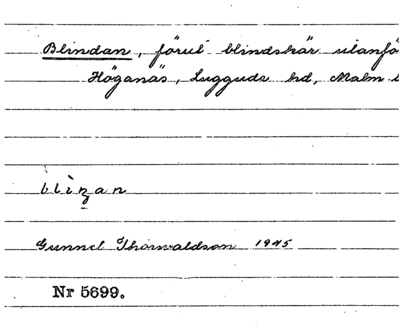 Blindan, förut blindskär utanfö
Höganäs, Luggude hd, Malm
blinan
Gunnel Thorwaldson 1945
Nr 5699.